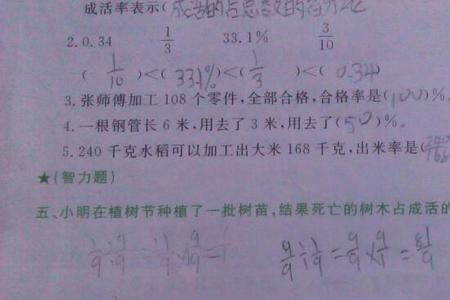 成活率表示(成活的占总数的百分比
2.0.34 1/3 33.1% 3/10
( 1/10 )<( 33.1% )<( 1/3 )<( 0.34 )
3.张师傅加工 108 个零件,全部合格,合格率是(100)%。
4.一根钢管长 6 米,用去了 3 米,用去了(50)%。
5.240 千克水稻可以加工出大米 168 千克,出米率是(
★(智力题)
五、小明在植树节种植了一批树苗,结果死亡的树木占成活的